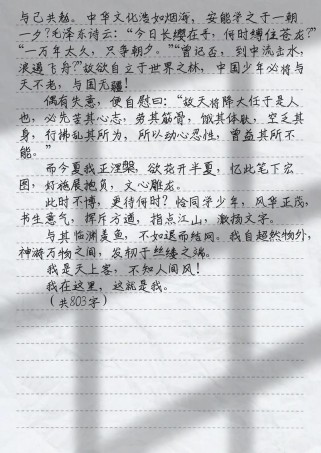 与己共勉。中华文化浩如烟海，安能学之于一朝
一夕？毛泽东诗云：“今日长缨在手，何时缚住苍龙？”
“一万年太久，只争朝夕。”“曾记否，到中流击水，
浪遏飞舟？”故欲自立于世界之林，中国少年必将与
天不老，与国无疆！
偶有失意，便自慰曰：“故天将降大任于是人
也，必先苦其心志，劳其筋骨，饿其体肤，空乏其
身，行拂乱其所为，所以动心忍性，曾益其所不
能。”
而今夏我正涅槃，欲花开半夏，忆此笔下宏
图，好施展抱负，文心雕龙。
此时不博，更待何时？恰同学少年，风华正茂，
书生意气，挥斥方遒，指点江山，激扬文字。
与其临渊羡鱼，不如退而结网。我自超然物外，
神游万物之间，发轫于丝缕之端。
我是天上客，不知人间风！
我在这里，这就是我。
（共803字）